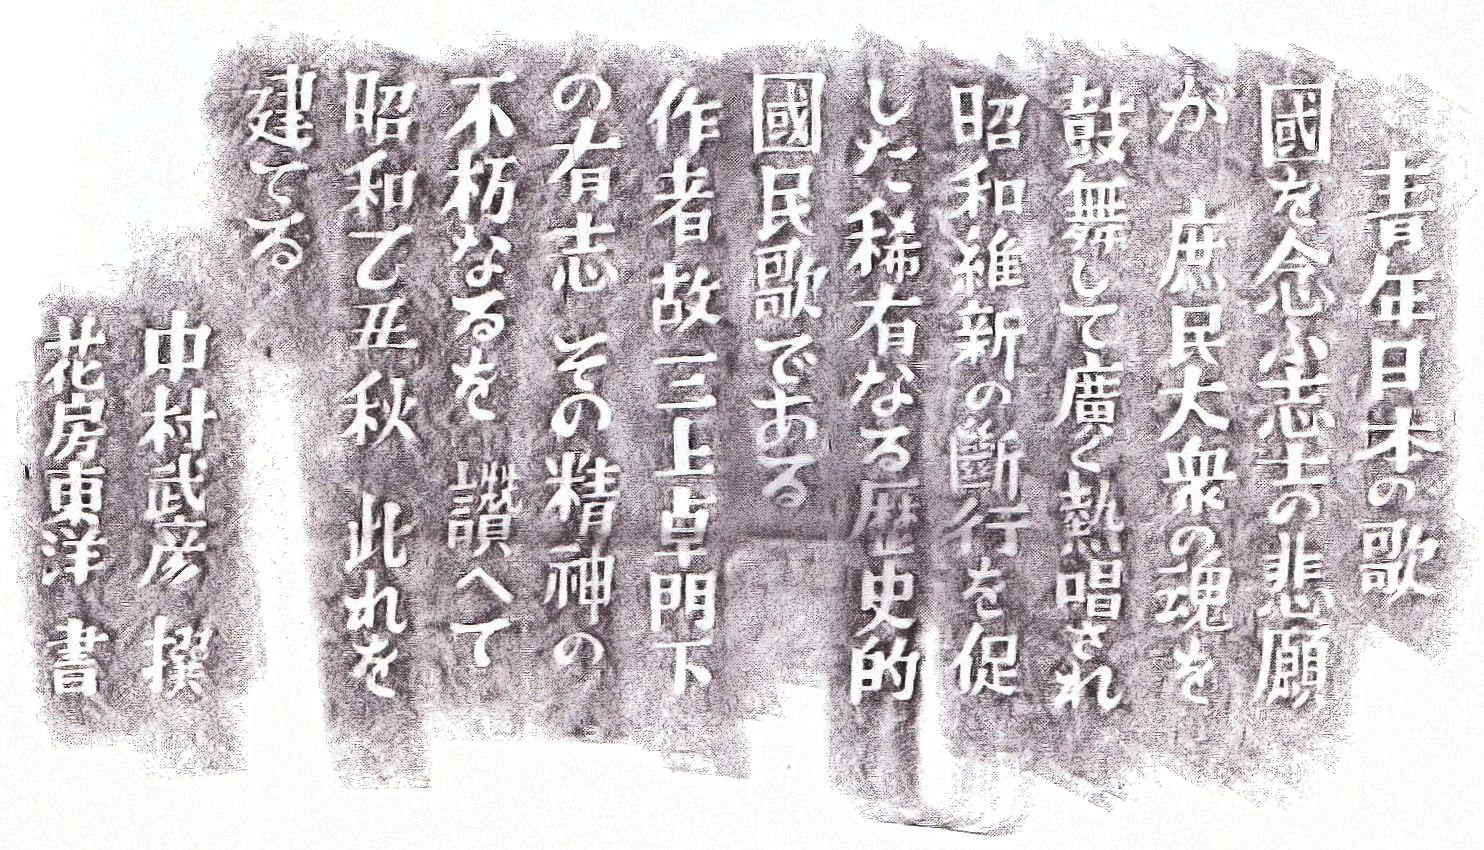 青年日本の歌
國を念ふ志士の悲願
が 庶民大衆の魂を
鼓舞して廣く熱唱され
昭和維新の斷行を促
した稀有なる歴史的
國民歌である
作者故三上卓門下
の有志 その精神の
不朽なるを 讃へて
昭和乙丑秋 此れを
建てる
中村武彦 撰
花房東洋 書